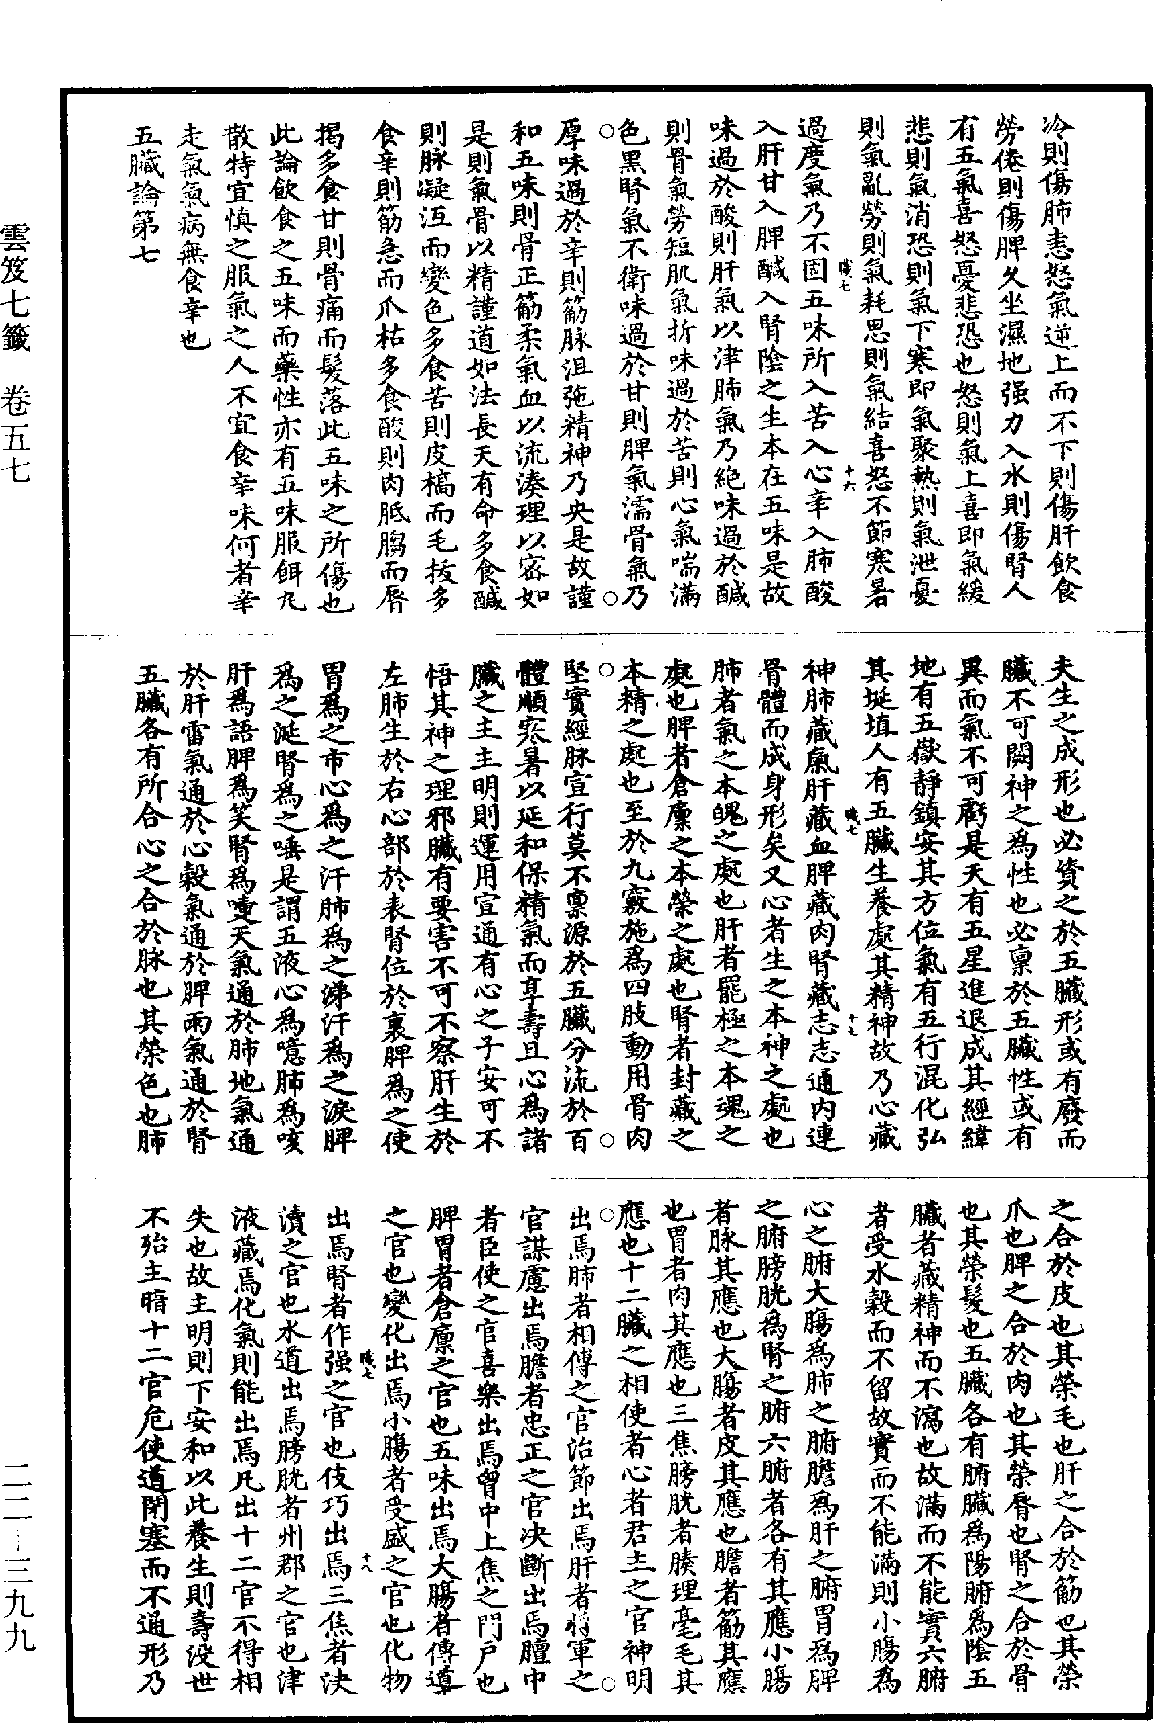 冷則傷肺恚怒氣逆上而不下則傷肝飲食
勞倦則傷脾久坐濕地强力入水則傷腎人
有五氣喜怒憂悲恐也怒則氣上喜即氣緩
悲則氣消恐則氣下寒即氣聚熱則氣泄憂
則氣亂勞則氣耗思則氣結喜怒不節寒暑
職七
十六
過度氣乃不固五味所入苦入心辛入肺酸
入肝甘入脾醎入腎陰之生本在五味是故
味過於酸則肝氣以津肺氣乃絶味過於醎
則骨氣勞短肌氣折味過於苦則心氣喘滿
色黑腎氣不衛味過於甘則脾氣濡骨氣乃
厚味過於辛則筋脉沮弛精神乃央是故謹
和五味則骨正筋柔氣血以流湊理以密如
是則氣骨以精謹道如法長天有命多食醎
則脉凝沍而變色多食苦則皮槁而毛拔多
食辛則筋急而爪枯多食酸則肉胝䐢而脣
揭多食甘則骨痛而髮落此五味之所傷也
此論飲食之五味而藥性亦有五味服餌九
散特宜慎之服氣之人不宜食辛味何者辛
走氣氣病無食辛也
五臟論第七
夫生之成形也必資之於五臟形或有廢而
臟不可闕神之為性也必稟於五臟性或有
異而氣不可虧是天有五星進退成其經緯
地有五嶽靜鎮安其方位氣有五行混化弘
其埏埴人有五臟生養處其精神故乃心藏
職七
十七
神肺藏氣肝藏血脾藏肉腎藏志志通內連
骨體而成身形矣又心者生之本神之處也
肺者氣之本魄之處也肝者罷極之本魂之
處也脾者倉廩之本榮之處也腎者封藏之
本精之處也至於九竅施為四肢動用骨肉
堅實經脉宣行莫不稟源於五臟分流於百
體順寒暑以延和保精氣而享壽且心為諸
臟之主主明則運用宣通有心之子安可不
悟其神之理邪臟有要害不可不察肝生於
左肺生於右心部於表腎位於裏脾為之使
胃為之市心為之汗肺為之涕汗為之淚脾
為之涎腎為之唾是謂五液心為噫肺為咳
肝為語脾為笑腎為嚏天氣通於肺地氣通
於肝雷氣通於心穀氣通於脾雨氣通於腎
五臟各有所合心之合於脉也其榮色也肺
之合於皮也其榮毛也肝之合於筋也其榮
爪也脾之合於肉也其榮脣也腎之合於骨
也其榮髮也五臟各有腑臟為陽腑為陰五
臟者藏精神而不瀉也故滿而不能實六腑
者受水穀而不留故實而不能滿則小腸為
心之腑大腸為肺之腑膽為肝之腑胃為脾
之腑膀胱為腎之腑六腑者各有其應小腸
者脉其應也大腸者皮其應也膽者筋其應
也胃者肉其應也三焦膀胱者腠理毫毛其
應也十二臟之相使者心者君主之官神明
出焉肺者相傳之官治節出焉肝者將軍之
官謀慮出焉膽者忠正之官決斷出焉膻中
者臣使之官喜樂出焉曾中上焦之門戶也
脾胃者倉廩之官也五味出焉大腸者傳導
之官也變化出焉小腸者受盛之官也化物
職七
十八
出焉腎者作强之官也伎巧出焉三焦者決
瀆之官也水道出焉膀胱者州郡之官也津
液藏焉化氣則能出焉凡出十二官不得相
失也故主明則下安和以此養生則壽没世
不殆主暗十二官危使道閉塞而不通形乃
雲笈七籤 卷五七
二二－三九九